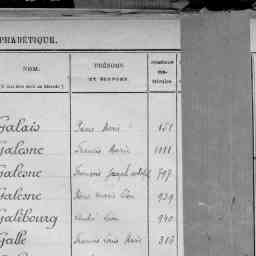 PHABÉTIQUE.
NOM.
PRÉNOMS
ET SURNOMS.
NUMÉROS
MA-
TRICULES
Galais Pierre Marie 151
Galesne Francis Marie 1111
Galesne François Joseph 797
Galesne Marie 939
Galibourg 940
Galle Francis Louis Marie 316